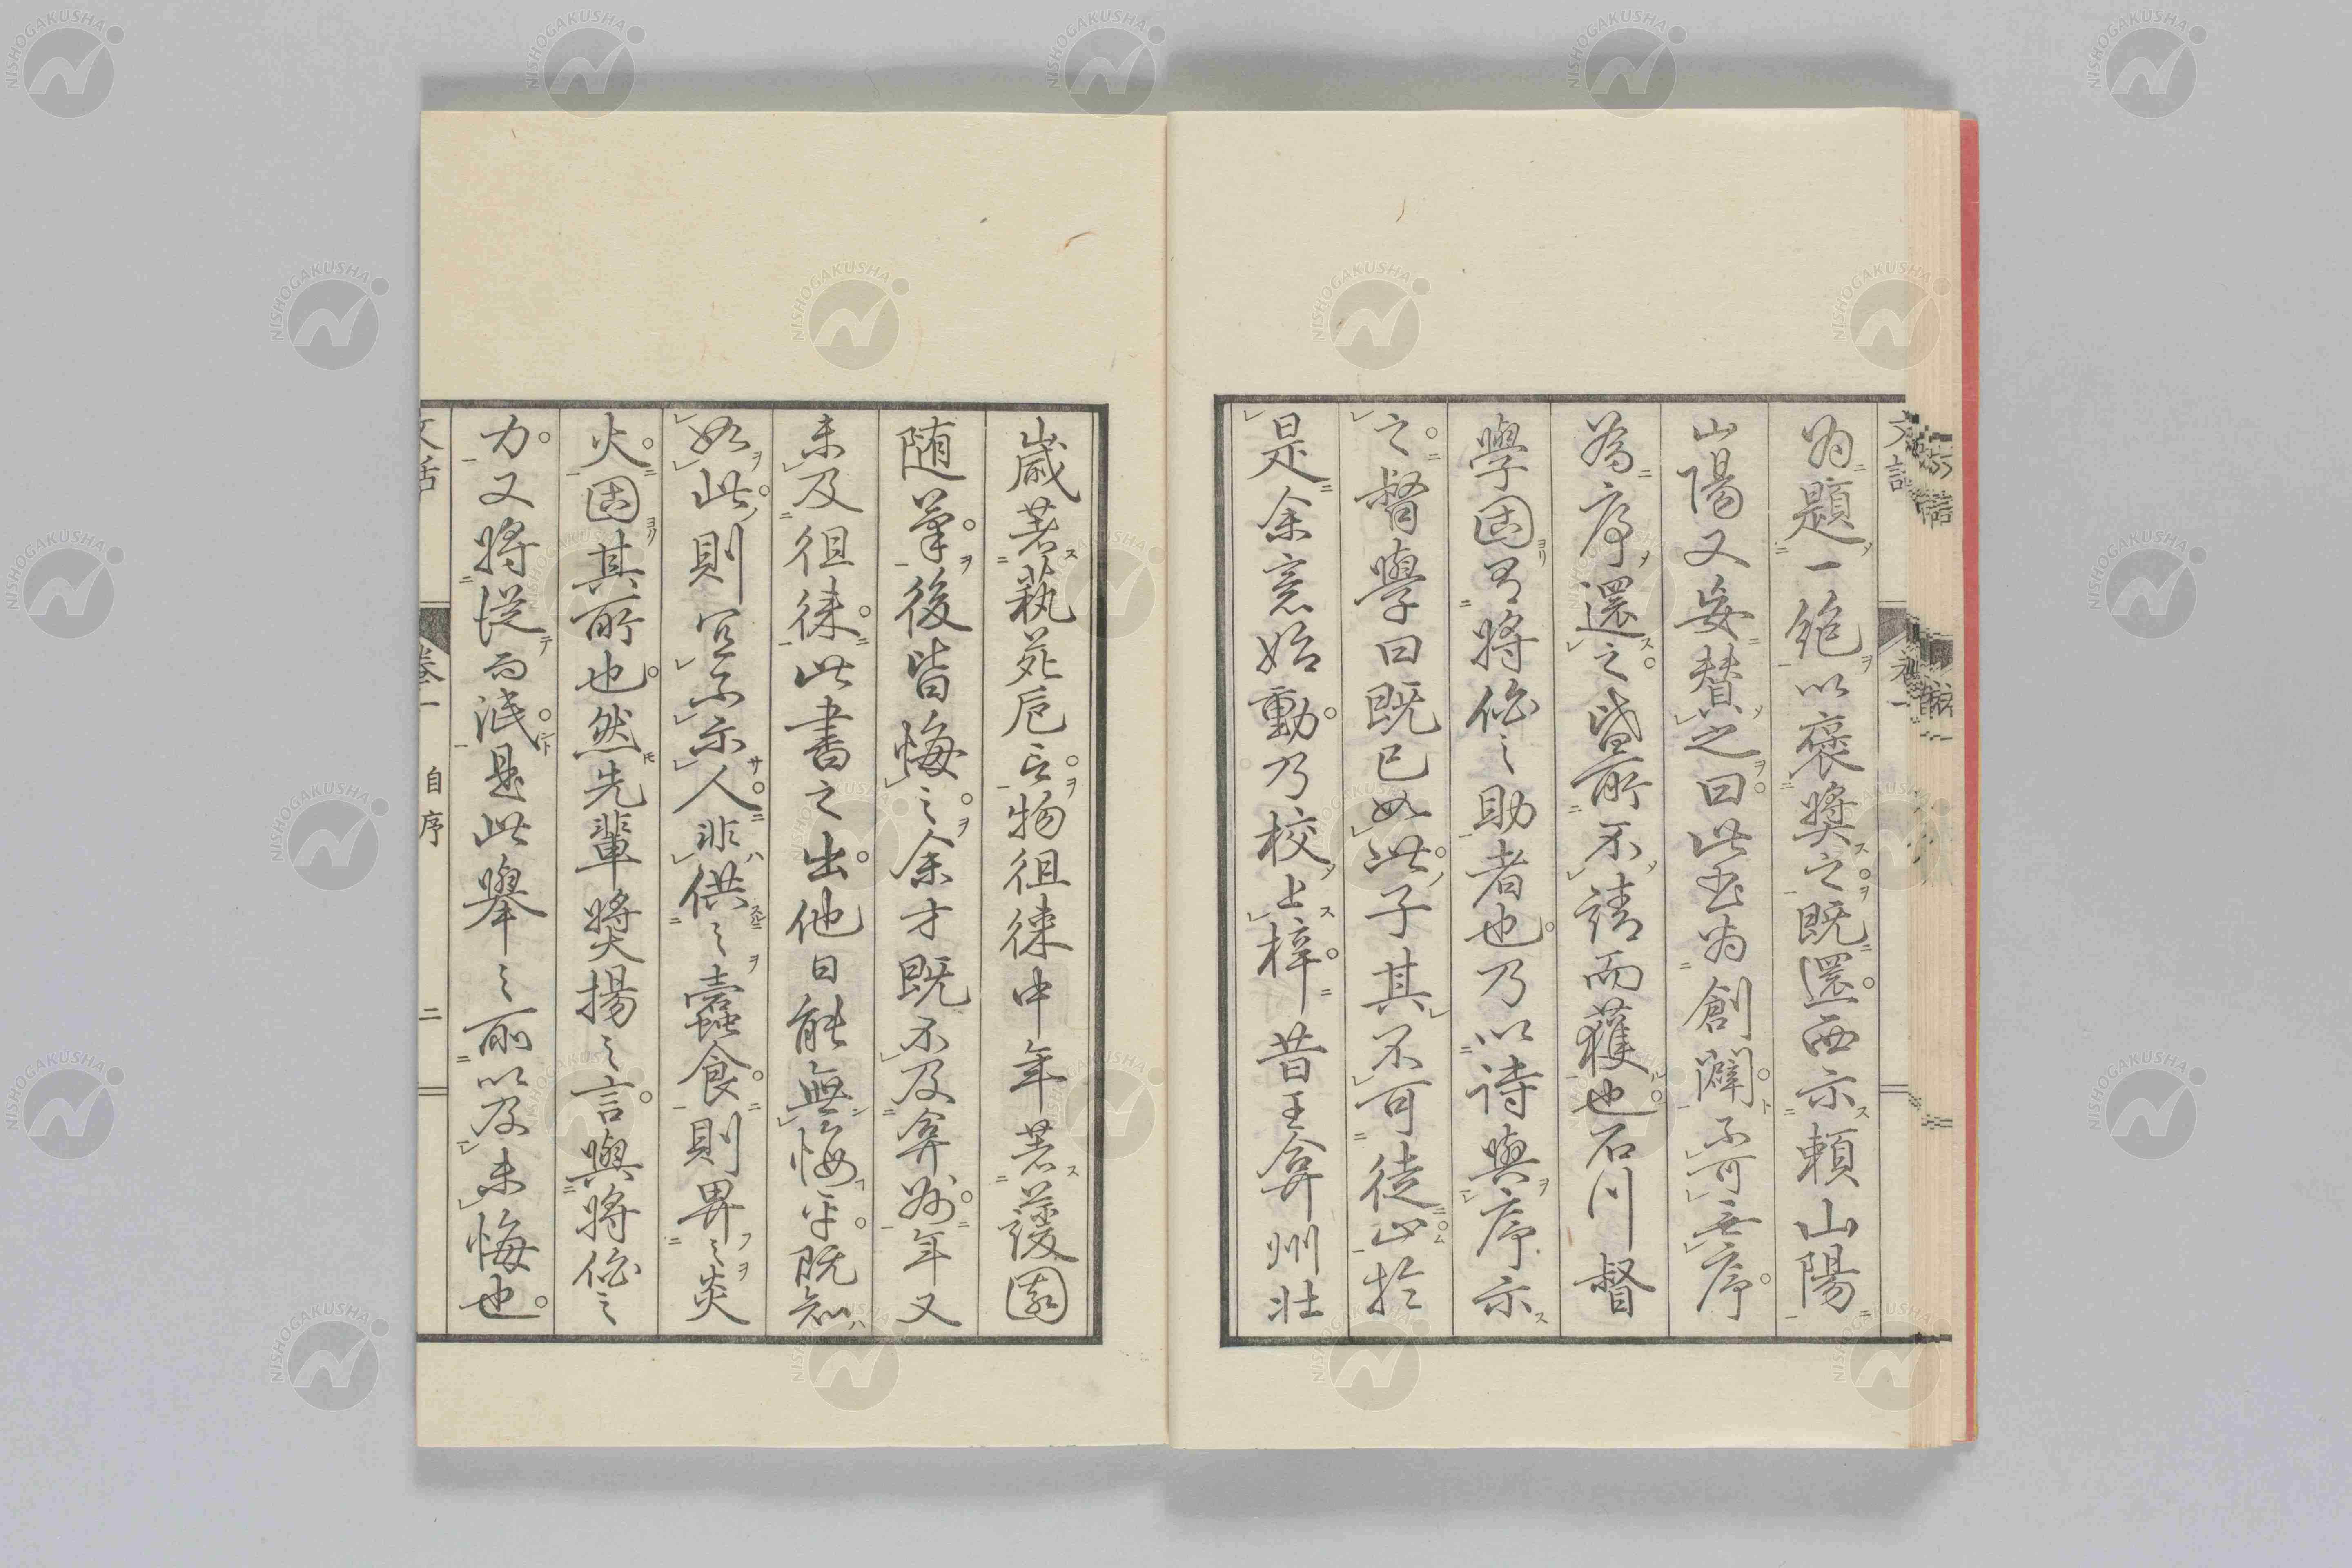 為題一絶以褒奬之既還西示頼山陽
山陽又妄賛之曰此書為創闢不可無序
為序還之皆前不請而獲也石川督
學固有將伯之助者也乃以詩與序示
之督學曰既已如此子其不可徒止於
是余意始動乃校上梓昔王弇州壯
歳著藝苑巵言物徂徠中年著蘐園
随筆後皆悔之余才既不及弇州年又
未及徂徠此書之出他日能無悔乎既知
如此則宜不示人非供之蠧食則畀之炎
火固其所也然先輩奬揚之言與將伯之
力又將従而泯是此舉之所以及未悔也
文話 巻一 自序 二
NISHOGAKUSHA